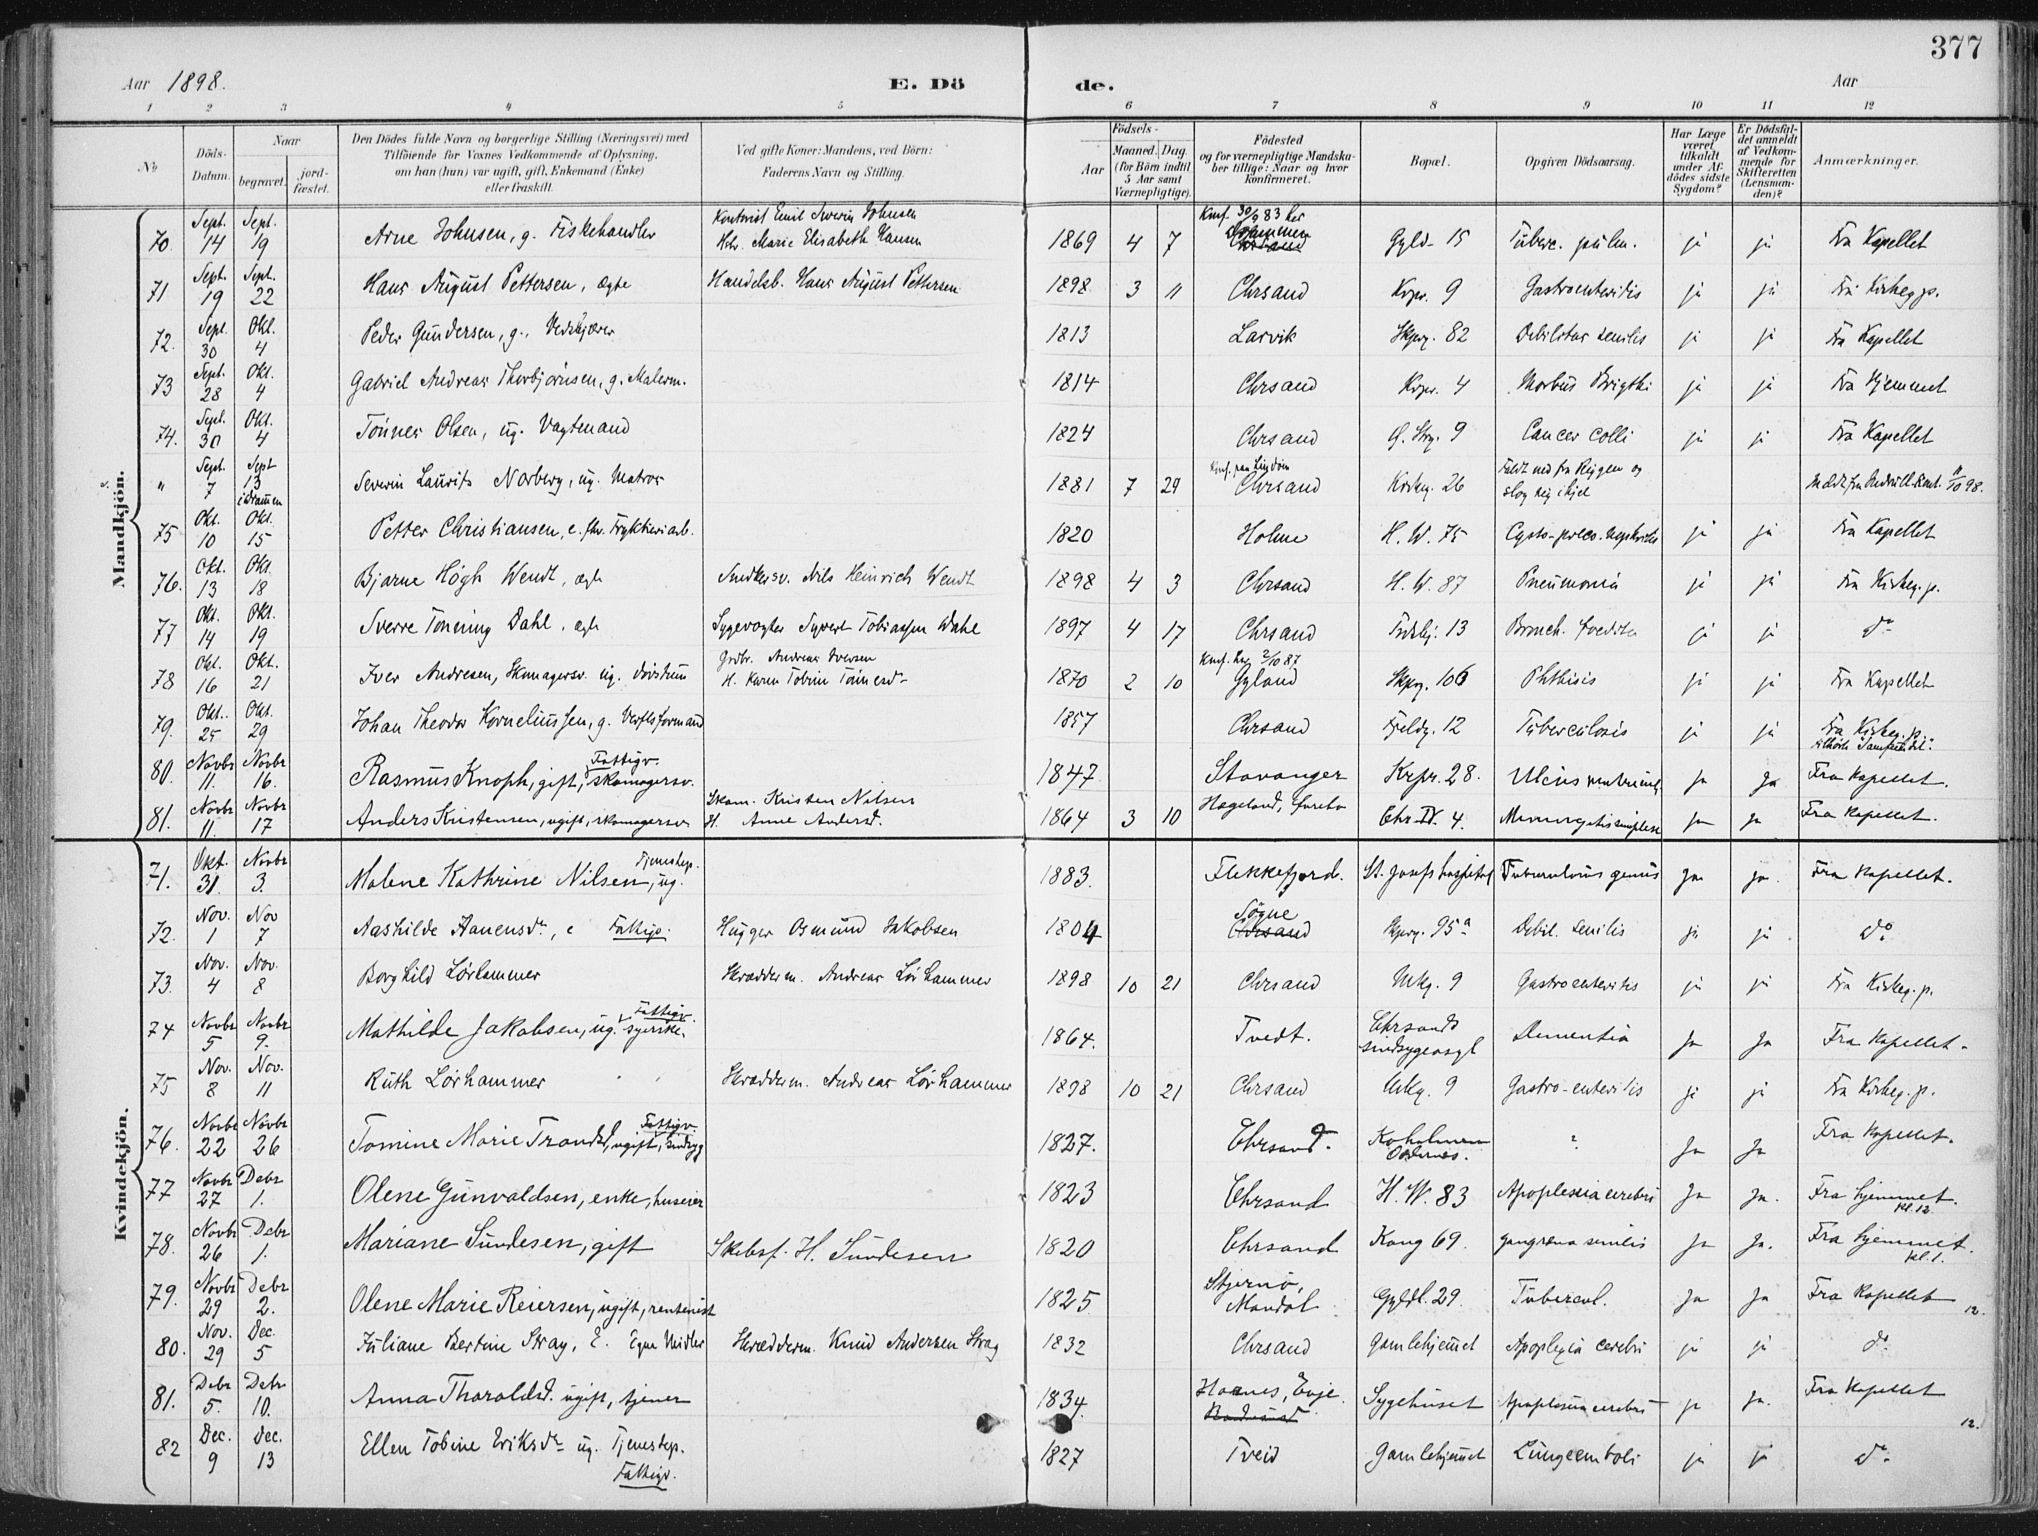 377
Aar 1898.
E. Dö de.
Aar
1 2 3 4 5 6 7 8 9 10 11 12
No
Döds-Datum.
Naar
begravet.
jord-fæstet.
Den Dödes fulde Navn og borgerlige Stilling (Næringsvei) med
Tilföiende for Voxnes Vedkommende af Oplysning,
om han (hun) var ugift, gift, Enkemand (Enke)
eller fraskilt.
Ved gifte Koner: Mandens, ved Börn:
Faderens Navn og Stilling.
Födsels-
Aar
Maaned. Dag.
(for Börn indtil
5 Aar samt
Værnepligtige).
Födested
og for værnepligtige Mandska-
ber tillige: Naar og hvor
konfirmeret.
Bopæl.
Opgiven Dödsaarsag.
Har Læge
været
tilkaldt
under Af-
dödes sidste
Sygdom?
Er Dödsfal-
det anmeldt
af Vedkom-
mende for
Skifteretten
(Lensman-
den)?
Anmærkninger.
Mandkjön.
70. Sept. 14 Sept. 19 Arne Johnsen, g. Fiskehandler Kontorist Emil Severin Johnsen Marie Elisabeth Hansen 1869 4 7 Konf. 30/9 83 her Drammen Gyld. 15 Tuberc. pulm. ja ja Fra Kapellet
71 Sept. 19 Sept. 22 Hans August Pettersen, ægte Handelsb. Hans August Pettersen 1898 3 11 Chrsand Krpr. 9 Gastroenteritis ja ja Fra Kirkeg.p.
72. Sept. 30 Okt. 4 Peder Gundersen, g., Vedskjærer 1813 Larvik Skprg. 82 Debilitas senilis ja ja Fra Kapellet
73 Sept. 28 Okt. 4 Gabriel Andreas Thorbjørnsen, g. Malerm. 1814 Chrsand Krpr. 4 Morbus Brigthi ja ja Fra Hjemmet
74. Sept. 30 Okt. 4 Tönnes Olsen, ug. Vagtmand 1824 Chrsand Strg. 9 Cancer colli ja ja Fra Kapellet
" Sept. 7 Sept 13 i Drammen Severin Laurits Norberg, ug. Matros 1881 7 29 Chrsand Kirkeg. 26 Faldt ned fra Riggen og slog sig ihjel
75 Okt. 10 Okt. 15 Petter Christiansen, e. fhv. 1820 Holme H.W. 75 ja ja Fra Kapellet
76. Okt. 13 Okt. 18 Bjarne Högh Wendt, ægte Snedkersv. Nils Heinrich Wendt 1898 4 3 Chrsand H.W. 87 Pneumonia ja ja Fra Kirkeg.p.
77 Okt. 14 Okt. 19 Sverre Tönning Dahl, ægte Sygevogter Syvert Tobiassen Dahl 1897 4 17 Chrsand 13 Bronch. foetida ja ja do
78 Okt. 16 Okt. 21 Iver Andresen, Skomagersv. ug. Grdbr. Andreas Iversen H. Karen Tobine Tönnesdr 1870 2 10 Konf. 2/10 87 Gyland Skprg. 106 Phthisis ja ja Fra Kapellet
79. Okt. 25 Okt. 29 Johan Theodor Korneliussen, g. Verftsformand 1857 Chrsand Fjeldg. 12 Tuberculosis ja ja Fra Kirkeg.p.
80. Novbr 11. Novbr 16. Rasmus Knoph, gift, skomagersv. Fattigv. 1847 Stavanger Krpr. 28. Ulcus ventriculi ja ja Fra Kapellet.
81. Novbr 11. Novbr 17 Anders Kristensen, ugift, skomagersv Skom. Kristen Nilsen H. Anne Andersd. 1864 3 10 Hægeland, Chr. IV. 4. ja ja Fra Kapellet.
Kvindekjön.
71. Okt. 31. Novbr 3. Malene Kathrine Nilsen, ug. Tjenestep. 1883. Flekkefjord. St. Josefs hospital ja ja. Fra Kapellet.
72. Nov. 1 Nov 7 Aashilde Aanensdr, e Fattigv. Hugger Osmund Jakobsen 1804 Søgne Chrsand Skprg. 95a Debil. senilis ja ja do
73. Nov. 4 Nov. 8 Borghild Lörhammer Skrædderm. Andreas Lörhammer 1898 10 21 Chrsand Mkg. 9 Gastroenteritis ja ja Fra Kirkeg.p.
74 Novbr 5 Novbr 9. Mathilde Jakobsen, ug. syerske. Fattigv. 1864. Tvedt. Chrsands sindsygeasyl Dementia ja ja Fra Kapellet.
75 Nov. 8 Nov. 11 Ruth Lörhammer Skrædderm. Andreas Lörhammer 1898 10 21 Chrsand Mkg. 9 Gastro-enteritis ja ja Fra Kirkeg.p.
76. Novbr 22 Novbr 26 Tomine Marie Trondsd, ugift, sindsyg Fattigv. 1827. Chrsand. Koholmen Oddernes. ? ja ja Fra Kapellet.
77 Novbr 27 Debr 1. Olene Gunvaldsen, enke, huseier 1823 Chrsand H.W. 83 Apoplexia cerebri ja ja. Fra hjemmet. kl. 12.
78. Novbr 26 Debr 1. Mariane Sundesen, gift Skibsf. H. Sundesen 1820 Chrsand Kong 69. gangræna senilis ja ja. Fra hjemmet. kl. 1.
79. Novbr 29 Debr 2. Olene Marie Reiersen, ugift, rentenist 1825. Stjernö, Mandal Gyldl. 29. Tubercul. ja ja Fra Kapellet 12.
80. Nov. 29 Dec. 5 Juliane Bertine Stray, E. Egne Midler Skrædderm. Knud Andersen Stray 1832 Chrsand Gamlehjemet Apoplexia cerebri ja ja do
81. Debr 5. Debr 10. Anna Thoraldsd. ugift, tjener 1834. Hornes, Evje. Sygehuset Apoplexia cerebri ja ja. Fra Kapellet 12.
82 Dec. 9 Dec. 13 Ellen Tobine Eriksdr ug. Tjenestep. Fattigv. 1827 Tveid Gamlehjemet Lungeemboli ja ja do